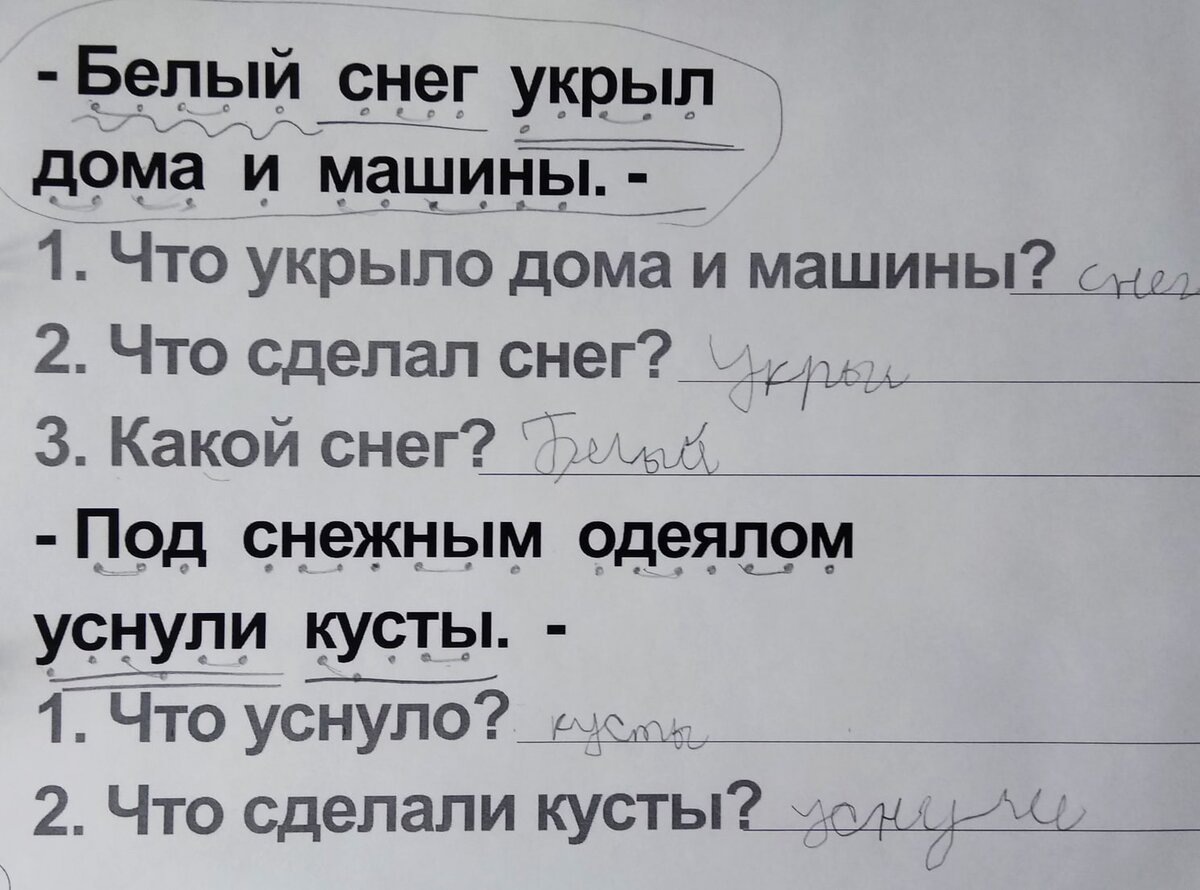 - Белый снег укрыл
дома и машины. -
1. Что укрыло дома и машины? снег
2. Что сделал снег? Укрыл
3. Какой снег? Белый
- Под снежным одеялом
уснули кусты. -
1. Что уснуло? кусты
2. Что сделали кусты? уснули